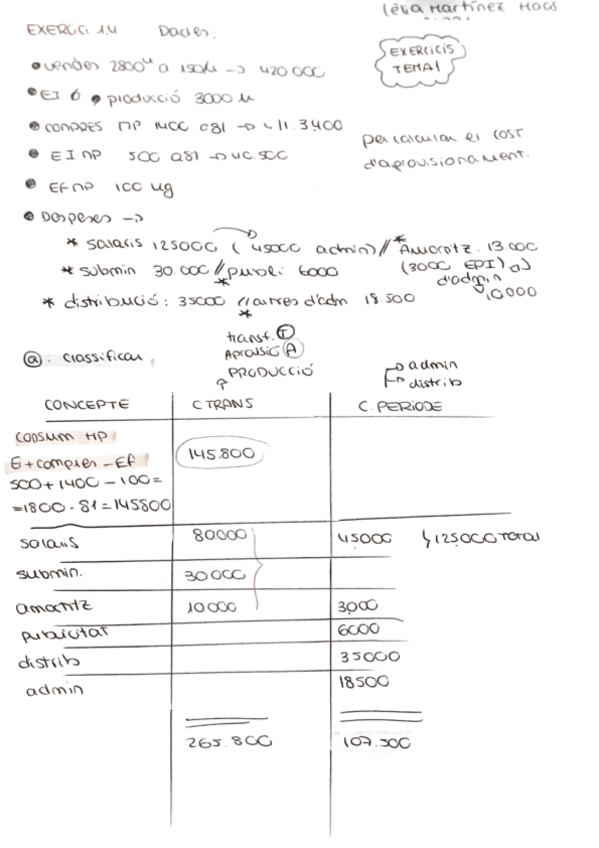 Leva Martínez Mas
EXERCICI 1.4 Dades:
EXERCICIS
TEMA 1
• vendes 2800u a 150/u → 420 000
• EI 0, producció 3000 u
• COMPRES MP 1400 a 81 → 113.400
per calcular el cost
d'aprovisionament.
• EI MP 500 a 81 → 40.500
• EF MP 100 ug
• Despeses →
* salaris 125000 (45000 admin) // * Amortitz. 13.000
* submin 30.000 // publi: 6000 (3000 EPI) a)
d'admin
* distribució: 35000 // altres d'adm 18.500 10.000
transf. T
Aprovisio A
PRODUCCIÓ
ⓐ. Classificar
→ admin
→ distrib
CONCEPTE C TRANS C. PERÍODE
CONSUM MP
Ei + compres - Ef 145.800
500 + 1400 - 100 =
= 1800 · 81 = 145800
salaris 80000 45000 ↳ 125000 TOTAL
submin. 30000
amortitz 10000 3000
publicitat 6000
distrib 35000
admin 18500
265.800 107.500